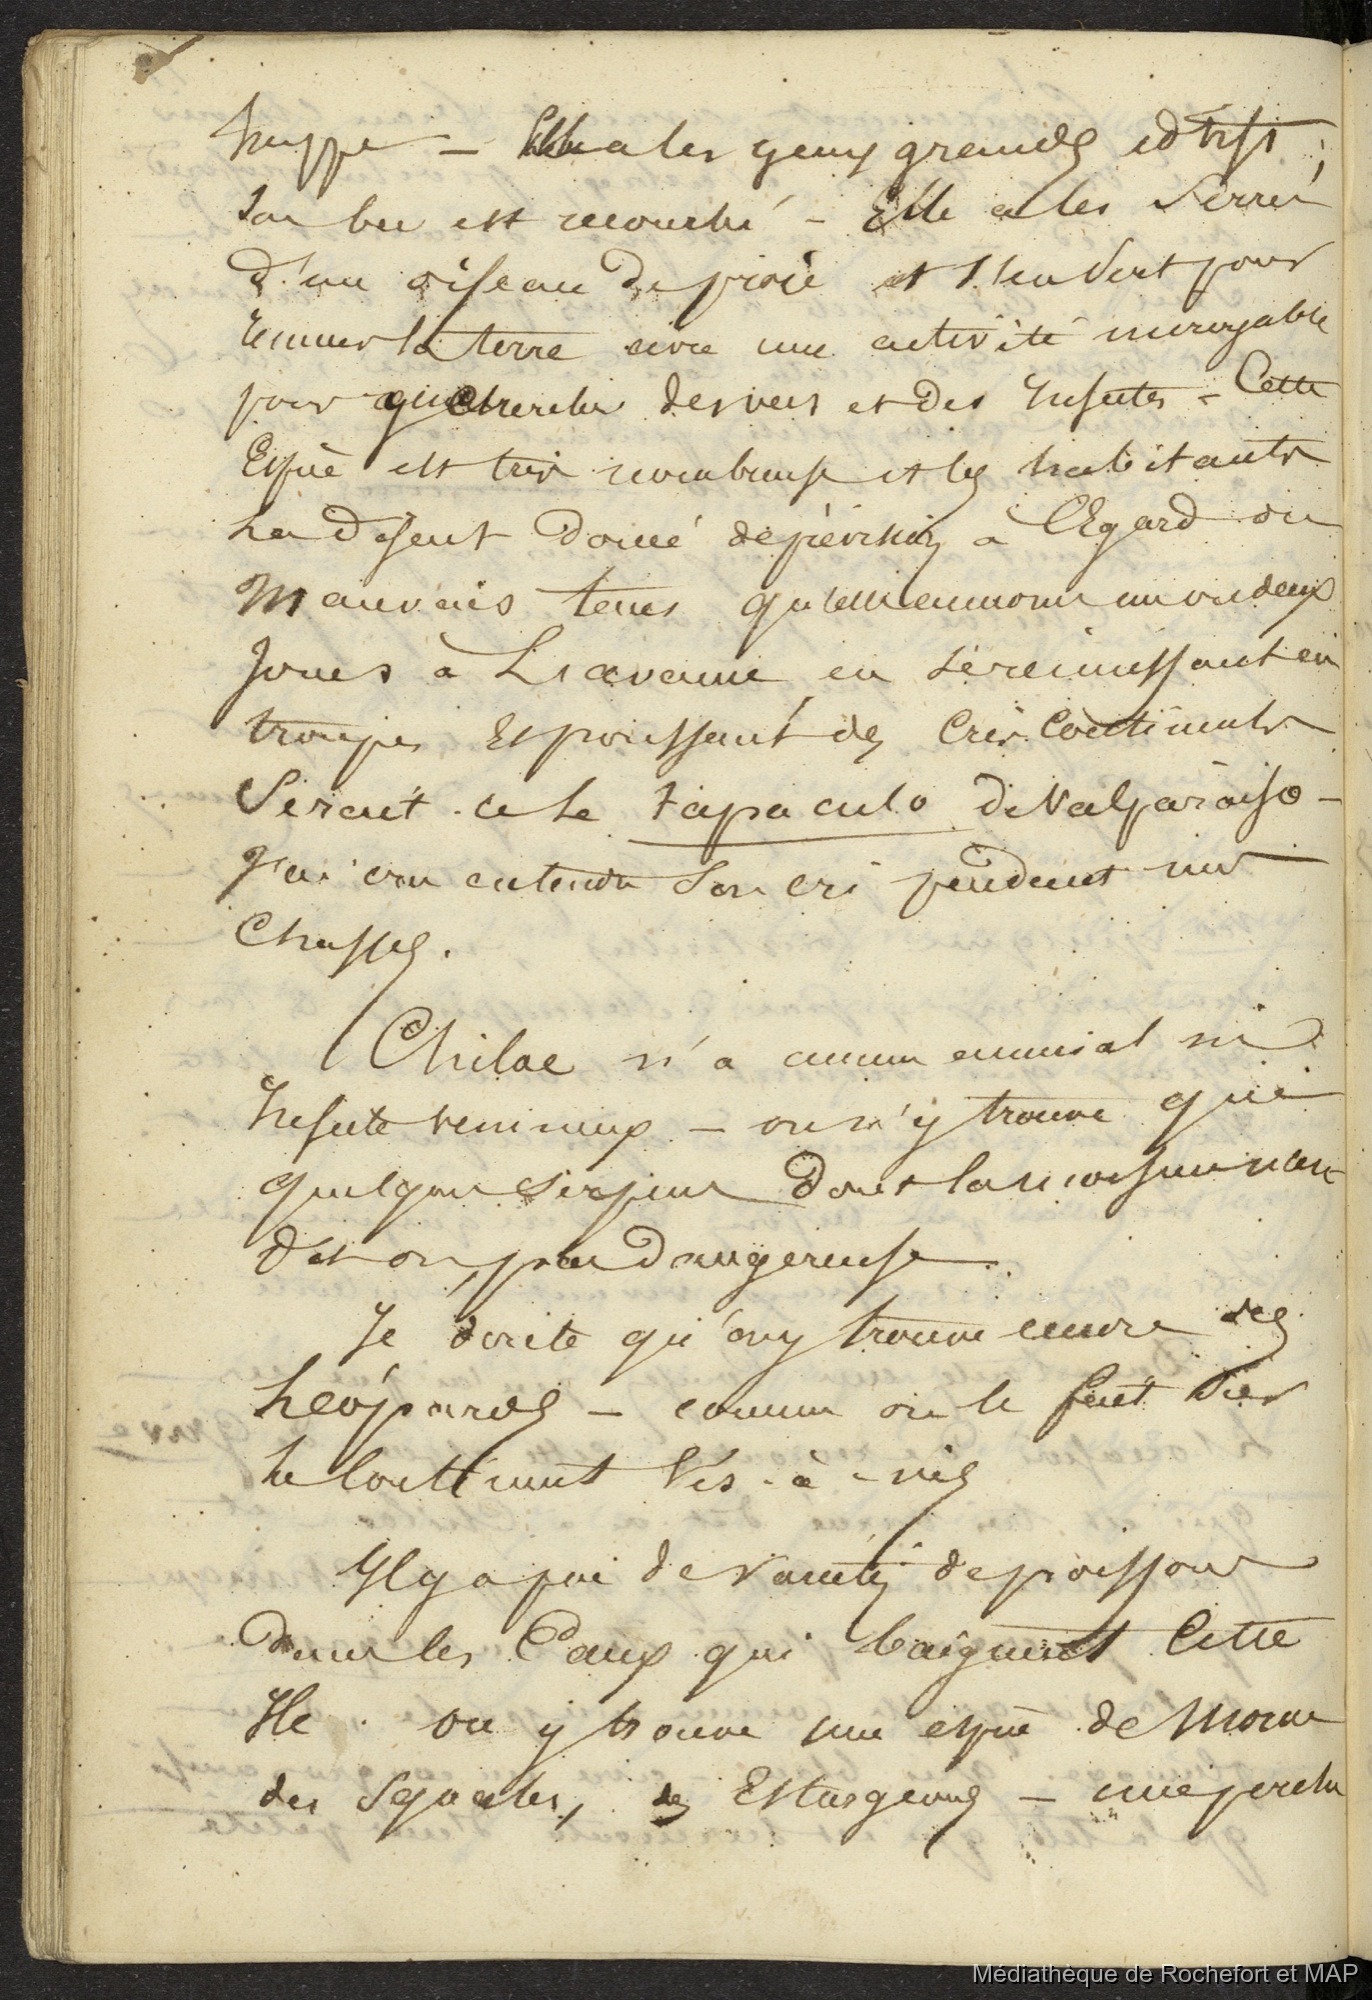 huppe — Elle a les yeux grands et tristes,
Son bec est recourbé — Elle a les Serres
d'un oiseau de proie et s'en sert pour
remuer la terre avec une activité incroyable
pour chercher des vers et des Insectes — Cette
Espèce est très nombreuse et les habitants
La disent doué de prévision à l'Egard du
Mauvais tems qu'elle annonce un ou deux
Jours à L'avance en se réunissant en
troupes Et poussant des Cris Continuels
Serait-ce le tapaculo de Valparaiso —
J'ai cru entendre Son cri pendant mes
Chasses.
Chiloe n'a aucun animal ni
Insecte venimeux — on n'y trouve que
quelques serpens dont la morsure n'est
dit on, pas dangereuse.
Je doute qu'on y trouve encore des
Léopards — comme on le fait sur
Le Continent Vis-à-vis
Il y a peu de variétés de poissons
dans les Eaux qui baignent Cette
Ile. on y trouve une espèce de Morue
des Squales, des Esturgeons — une perche
Médiathèque de Rochefort et MAP